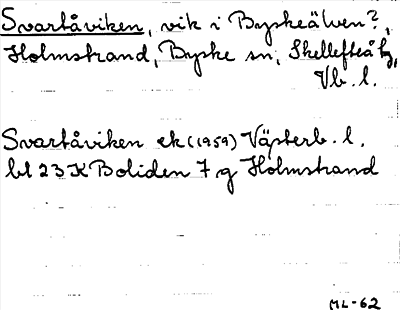 Svartåviken, vik i Byskeälven?,
Holmstrand, Byske sn, Skellefteå tg,
Vb. l.
Svartåviken ek (1959) Västerb. l.
bl 23 K Boliden 7 g Holmstrand
ML-62